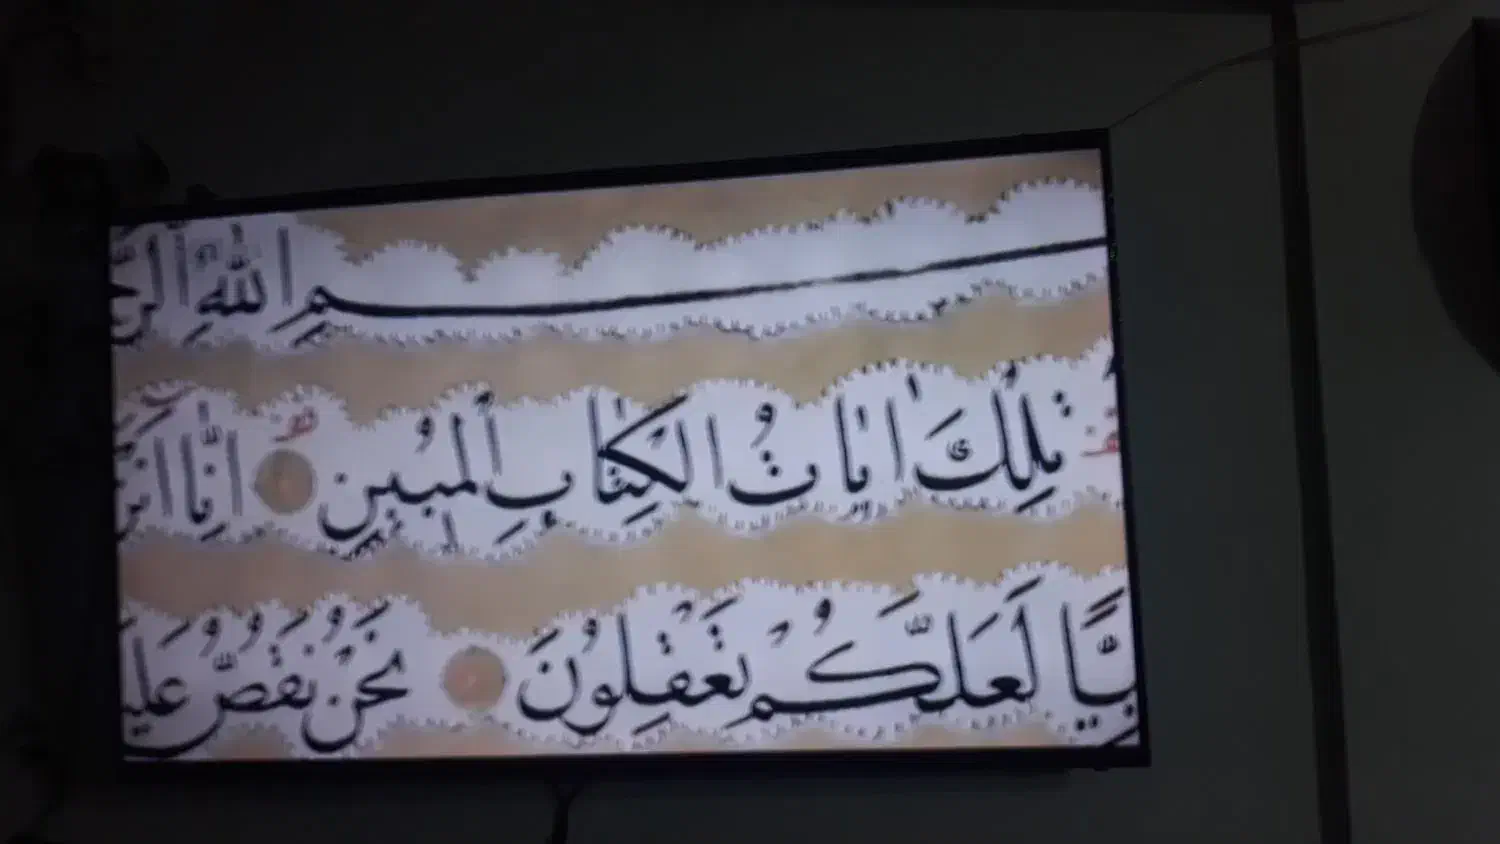 بِسْمِ اللهِ الرَّحْ
تِلْكَ اٰيَاتُ الْكِتَابِ الْمُبِينِ اِنَّا اَنْزَ
بِيًّا لَعَلَّكُمْ تَعْقِلُونَ نَحْنُ نَقُصُّ عَلَيْ